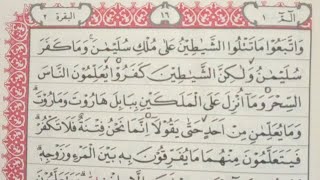 الٓمّٓ ١ ١٦ البقرة ٢
وَاتَّبَعُوْا مَا تَتْلُوا الشَّيٰطِيْنُ عَلٰى مُلْكِ سُلَيْمٰنَ ۚ وَمَا كَفَرَ
سُلَيْمٰنُ وَلٰكِنَّ الشَّيٰطِيْنَ كَفَرُوْا يُعَلِّمُوْنَ النَّاسَ
السِّحْرَ وَمَآ اُنْزِلَ عَلَى الْمَلَكَيْنِ بِبَابِلَ هَارُوْتَ وَمَارُوْتَ ۗ
وَمَا يُعَلِّمٰنِ مِنْ اَحَدٍ حَتّٰى يَقُوْلَآ اِنَّمَا نَحْنُ فِتْنَةٌ فَلَا تَكْفُرْ ۗ
فَيَتَعَلَّمُوْنَ مِنْهُمَا مَا يُفَرِّقُوْنَ بِهٖ بَيْنَ الْمَرْءِ وَزَوْجِهٖ ۗ